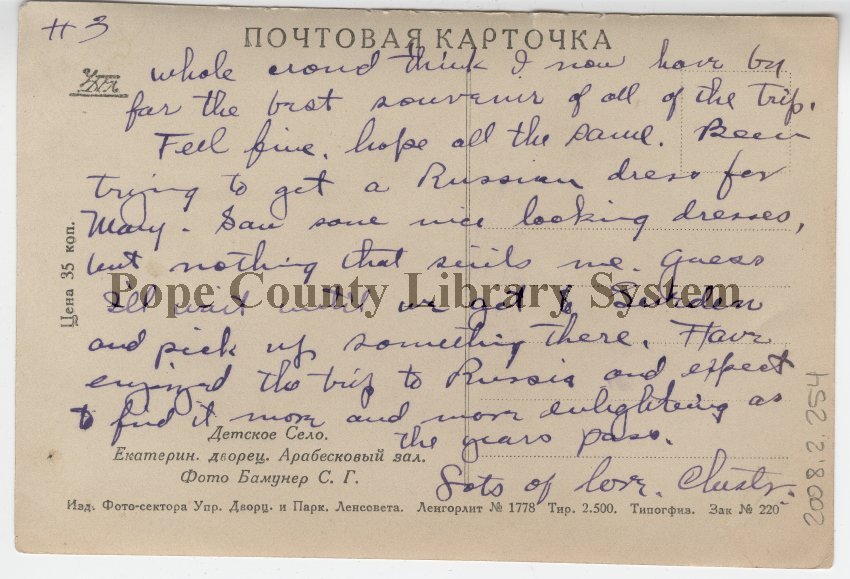 #3
ПОЧТОВАЯ КАРТОЧКА
whole crowd think I now have by
far the best souvenir of all of the trip.
Feel fine, hope all the same. Been
trying to get a Russian dress for
Mary. Saw some nice looking dresses,
but nothing that suits me. Guess
I'll wait until we get to Sweden
and pick up something there. Have
enjoyed the trip to Russia and expect
to find it more and more enlightening as
the years pass.
Lots of love.
Цена 35 коп.
Pope County Library System
Детское Село.
Екатерин. дворец. Арабесковый зал.
Фото Бамунер С. Г.
Изд. Фото-сектора Упр. Дворц. и Парк. Ленсовета. Ленгорлит № 1778 Тир. 2.500. Типогфиз. Зак № 220
2008.2.254